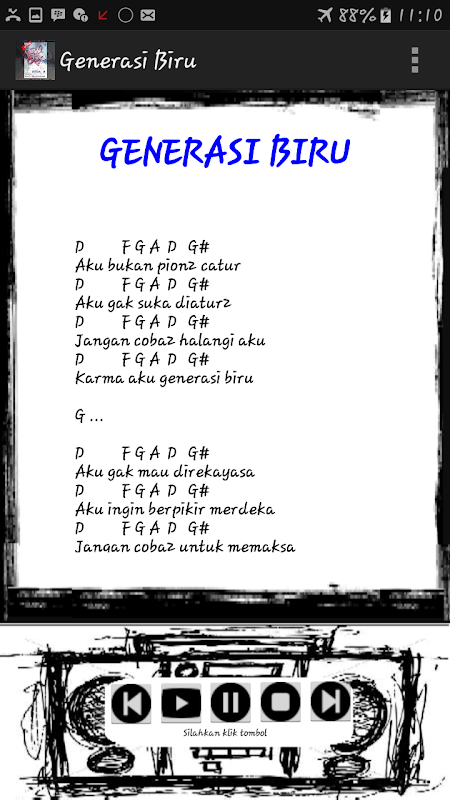 88% 11:10
Generasi Biru
GENERASI BIRU
D F G A D G#
Aku bukan pion2 catur
D F G A D G#
Aku gak suka diatur2
D F G A D G#
Jangan coba2 halangi aku
D F G A D G#
Karma aku generasi biru
G ...
D F G A D G#
Aku gak mau direkayasa
D F G A D G#
Aku ingin berpikir merdeka
D F G A D G#
Jangan coba2 untuk memaksa
Silahkan klik tombol